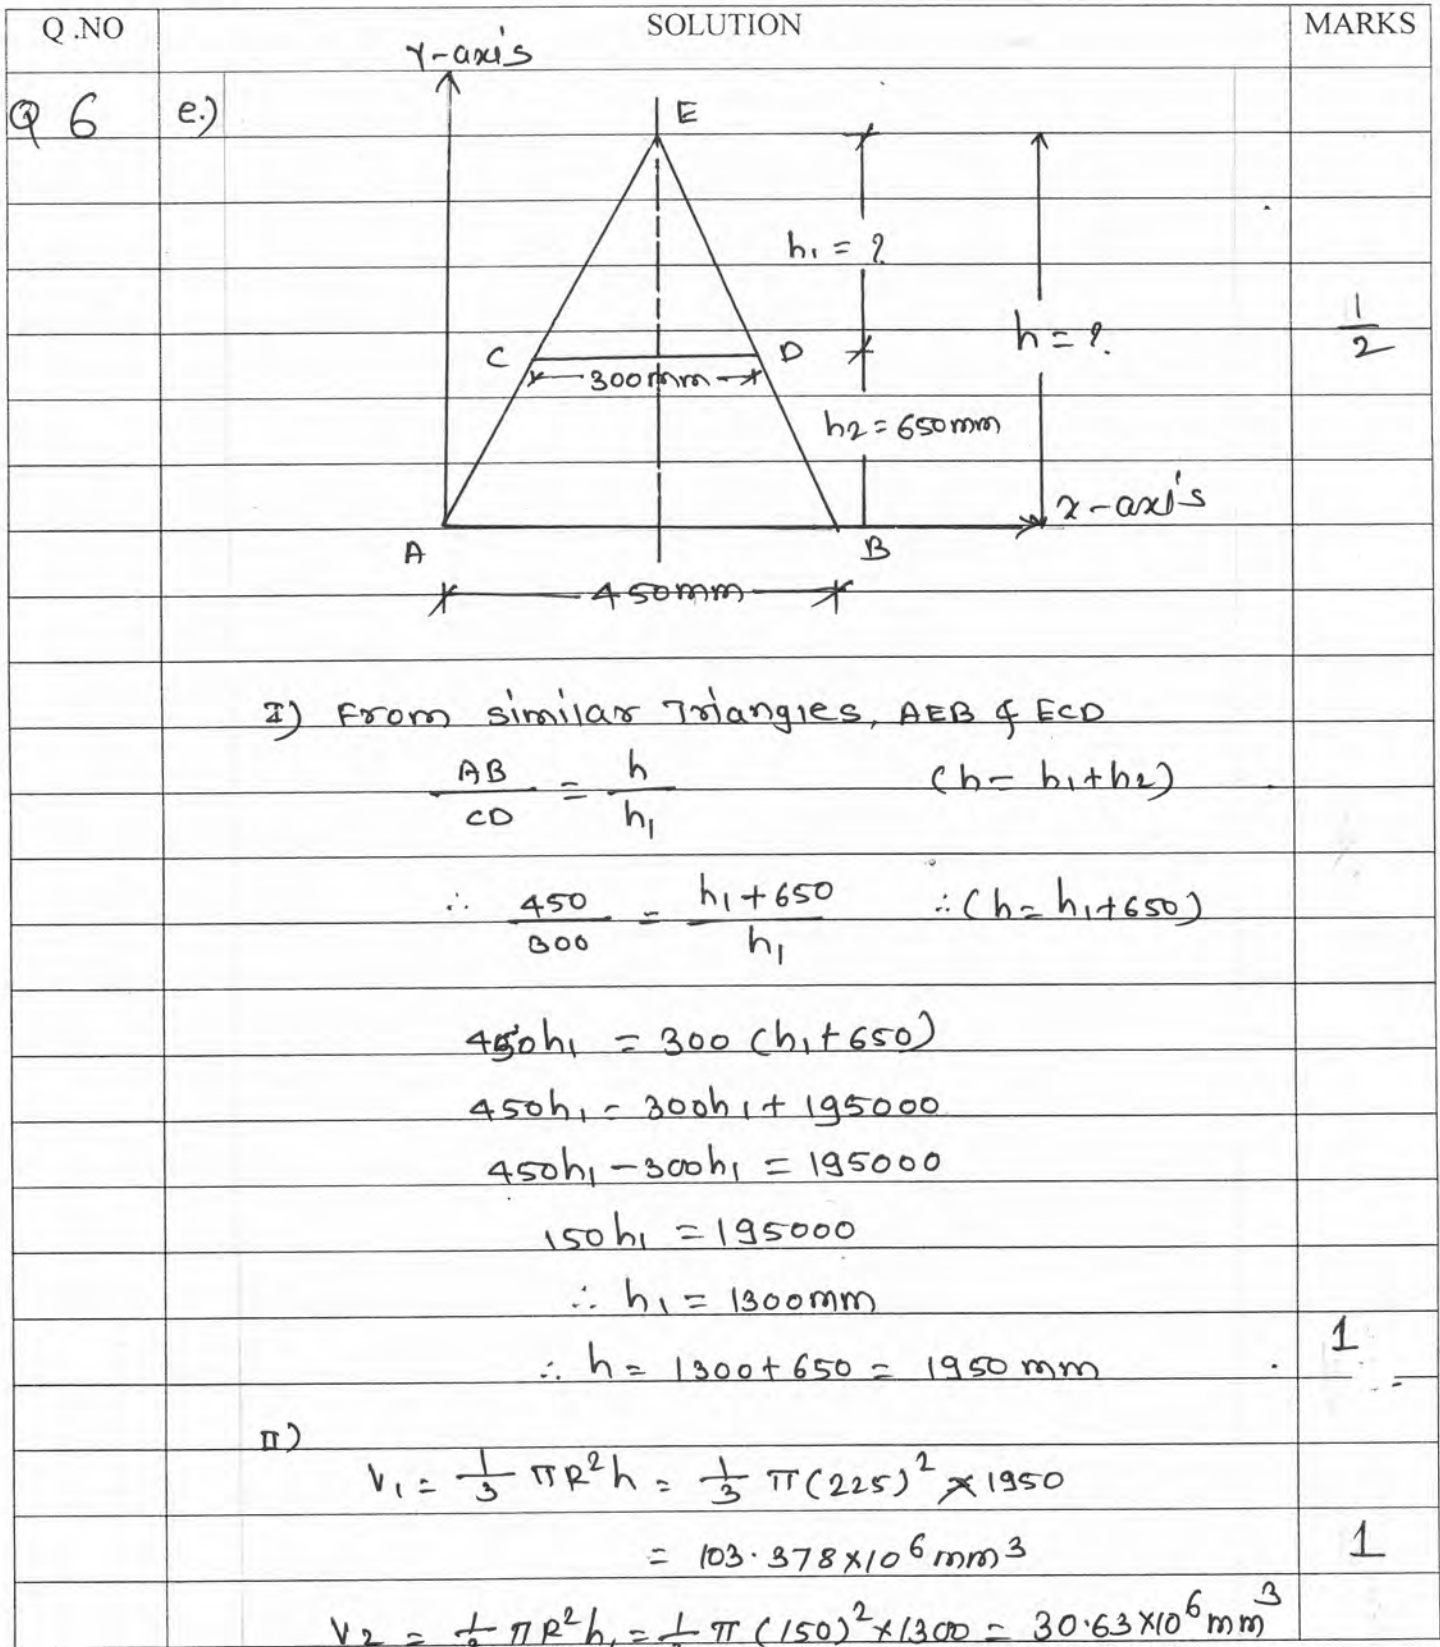 Q.NO SOLUTION MARKS
Y-axis
Q 6 e.) E
h₁ = ?
h = ? 1/2
C D
300mm
h2 = 650mm
x-axis
A B
450mm
I) From similar Triangles, AEB & ECD
AB/CD = h/h₁ (h = h₁+h₂)
∴ 450/300 = h₁+650/h₁ ∴ (h = h₁+650)
450h₁ = 300 (h₁+650)
450h₁ = 300h₁ + 195000
450h₁ - 300h₁ = 195000
150h₁ = 195000
∴ h₁ = 1300mm
∴ h = 1300+650 = 1950 mm 1
II)
V₁ = 1/3 πR²h = 1/3 π(225)² × 1950
= 103.378×10⁶ mm³ 1
V₂ = 1/3 πR²h₁ = 1/3 π (150)²×1300 = 30.63×10⁶ mm³